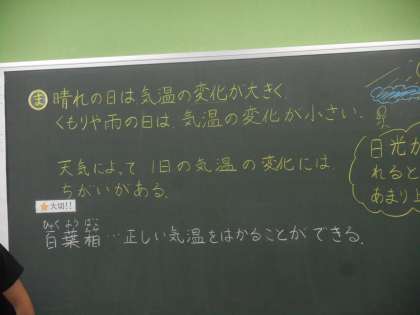 ま 晴れの日は気温の変化が大きく
くもりや雨の日は、気温の変化が小さい。
天気によって1日の気温の変化には
ちがいがある。
★大切!!
ひゃくようばこ
百葉箱…正しい気温をはかることができる。
日光が
れると
あまり上